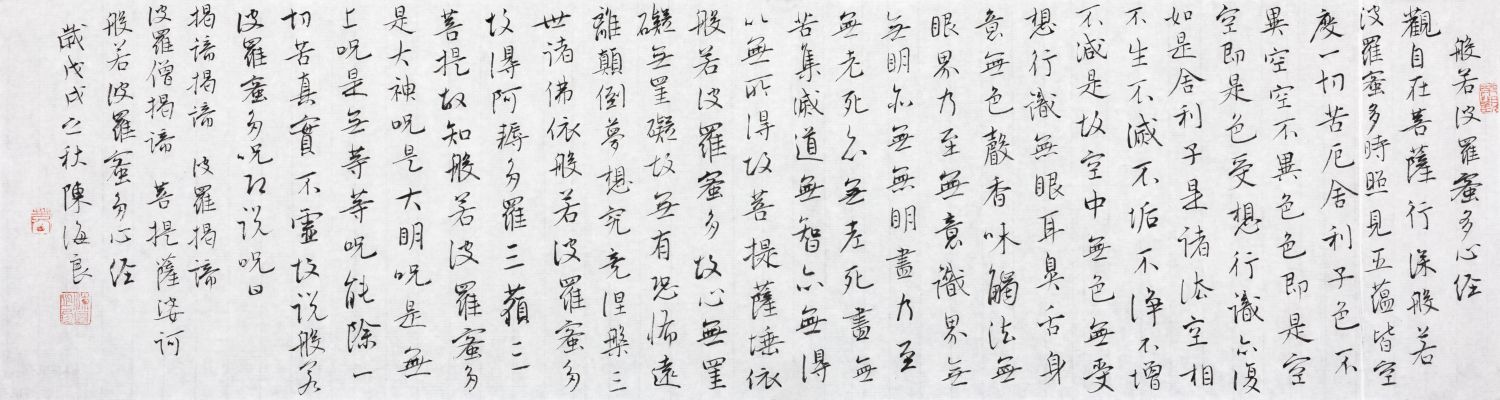 般若波羅蜜多心经
觀自在菩薩行深般若
波羅蜜多時照見五蕴皆空
度一切苦厄舍利子色不
異空空不異色色即是空
空即是色受想行識亦復
如是舍利子是诸法空相
不生不滅不垢不净不增
不减是故空中無色無受
想行識無眼耳鼻舌身
意無色聲香味觸法無
眼界乃至無意識界無
無明亦無無明盡乃至
無老死亦無老死盡無
苦集滅道無智亦無得
以無所得故菩提薩埵依
般若波羅蜜多故心無罣
礙無罣礙故無有恐怖遠
離顛倒夢想究竟涅槃三
世诸佛依般若波羅蜜多
故得阿耨多羅三藐三
菩提故知般若波羅蜜多
是大神呪是大明呪是無
上呪是無等等呪能除一
切苦真實不虚故说般若
波羅蜜多呪即说呪曰
揭諦揭諦 波羅揭諦
波羅僧揭諦 菩提薩婆訶
般若波羅蜜多心经
歲戊戌之秋陳海良